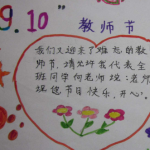 9.10"
教师节
我们又迎来了难忘的教
师节,请允许我代表全
班同学向老师说:老师
祝您节日快乐,开心。